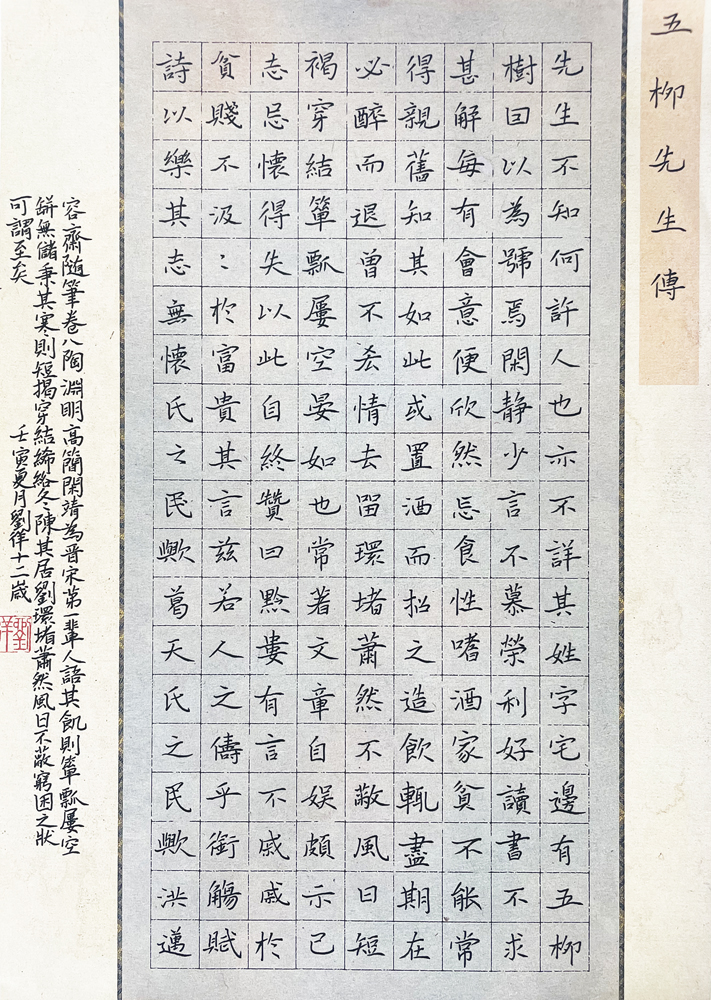 五柳先生傳
先生不知何許人也亦不詳其姓字宅邊有五柳
樹囙以為號焉閑静少言不慕榮利好讀書不求
甚解每有會意便欣然忘食性嗜酒家貧不能常
得親舊知其如此或置酒而招之造飲輒盡期在
必醉而退曾不吝情去留環堵蕭然不蔽風日短
褐穿結簞瓢屢空晏如也常著文章自娛頗示己
志忘懷得失以此自終贊曰黔婁有言不戚戚於
貧賤不汲〻於富貴其言兹若人之儔乎銜觴賦
詩以樂其志無懷氏之民歟葛天氏之民歟洪邁
容齋隨筆卷八陶淵明高簡閑靖為晋宋第一輩人語其飢則簞瓢屢空
缾無儲秉其寒則短揭穿結絺綌冬陳其居劉環堵蕭然風日不蔽窮困之狀
可謂至矣 壬寅夏月劉徉十二歲